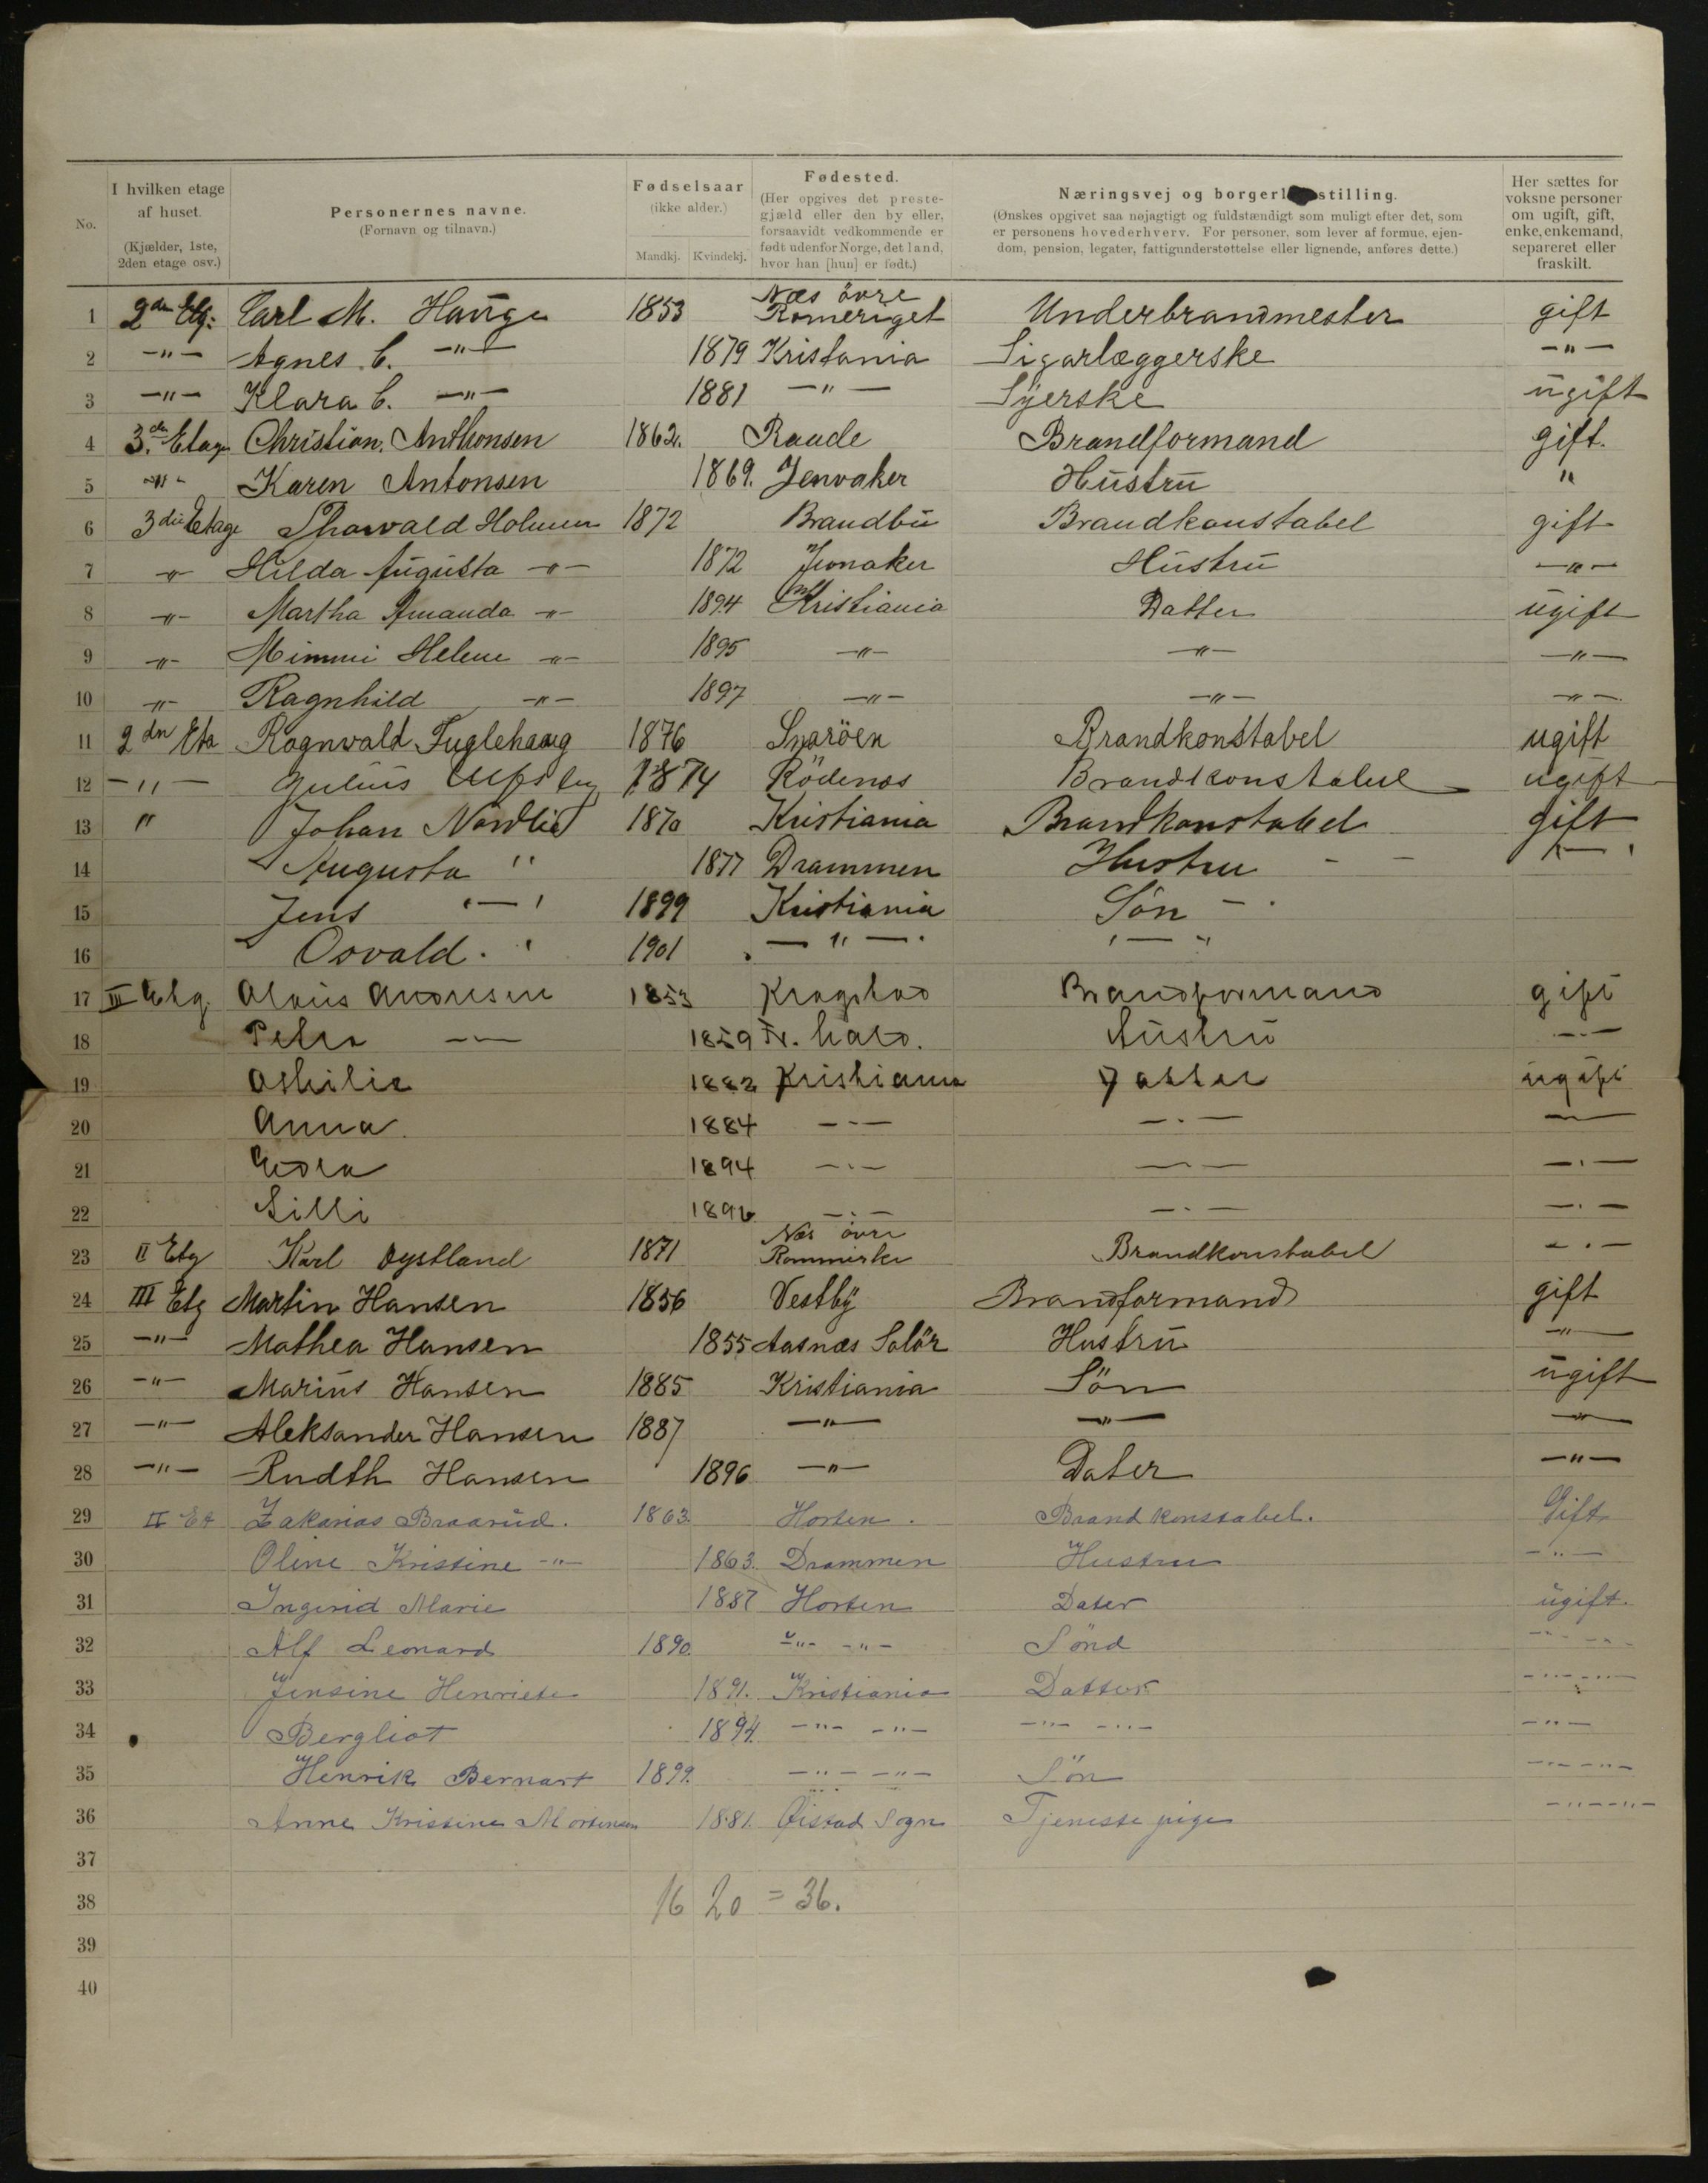 No.
I hvilken etage
af huset.
(Kjælder, 1ste,
2den etage osv.)
Personernes navne.
(Fornavn og tilnavn.)
Fødselsaar
(ikke alder.)
Mandkj. Kvindekj.
Fødested.
(Her opgives det preste-
gjæld eller den by eller,
forsaavidt vedkommende er
født udenfor Norge, det land,
hvor han [hun] er født.)
Næringsvej og borgerl stilling.
(Ønskes opgivet saa nøjagtigt og fuldstændigt som muligt efter det, som
er personens hovederhverv. For personer, som lever af formue, ejen-
dom, pension, legater, fattigunderstøttelse eller lignende, anføres dette.)
Her sættes for
voksne personer
om ugift, gift,
enke, enkemand,
separeret eller
fraskilt.
1 2den Etg: Carl M. Hauge 1853 Næs övre Romeriget Underbrandmester gift
2 -"- Agnes C. -"- 1879 Kristania Sigarlæggerske -"-
3 -"- Klara C. -"- 1881 -"- Syerske ugift
4 3.de Etage Christian Anthonsen 1862. Raade Brandformand gift.
5 -"- Karen Antonsen 1869. Jevnaker Hustru "
6 3die Etage Thorvald Holmen 1872 Brandbu Brandkonstabel gift
7 -"- Hilda Augusta -"- 1872 Jevnaker Hustru -"-
8 -"- Martha Amanda -"- 1894 Kristiania Datter ugift
9 -"- Mimmi Helene -"- 1895 -"- -"- -"-
10 -"- Ragnhild -"- 1897 -"- -"- -"-
11 2dn Eta Ragnvald Fuglehaug 1876 Snaröen Brandkonstabel ugift
12 -"- Julius 1874 Rödenæs Brandkonstabel ugift
13 " Johan Nordlie 1870 Kristiania Brandkonstabel gift
14 Augusta " 1877 Drammen Hustru - - "-"
15 Jens "-" 1899 Kristiania Sön -
16 Osvald. " 1901 -"- "-"
17 III Etg. Alavis Andresen 1853 Kragstad Brandformand gift
18 Petra -"- 1859 Fr. hald. Hustru -"-
19 Othilie 1882 Kristiania Datter ugift
20 Anna 1884 -"- -"- -"-
21 1894 -"- -"- -"-
22 Lilli 1896 -"- -"- -"-
23 II Etg Karl Oystland 1871 Næs övre Rommerike Brandkonstabel -"-
24 III Etg Martin Hansen 1856 Vestby Brandformand gift
25 -"- Mathea Hansen 1855 Aasnæs Solör Hustru -"-
26 -"- Marius Hansen 1885 Kristiania Sön ugift
27 -"- Aleksander Hansen 1887 -"- -"- -"-
28 -"- Rudth Hansen 1896 -"- Dater -"-
29 II Et Zakarias Braarud. 1863. Horten. Brandkonstabel. Gift
30 Oline Kristine -"- 1863. Drammen Hustru -"-
31 Ingerid Marie 1887 Horten Dater ugift.
32 Alf Leonard 1890. -"- -"- Sönd -"- -"-
33 Jensine Henriete 1891. Kristiania Datter -"- -"-
34 Bergliot 1894. -"- -"- -"- -"- -"-
35 Henrik Bernart 1899. -"- -"- Sön -"- -"-
36 Anne Kristine Mortensen 1881. Øistad Sogn Tjenestepige -"- -"-
37
38 16 20 = 36.
39
40